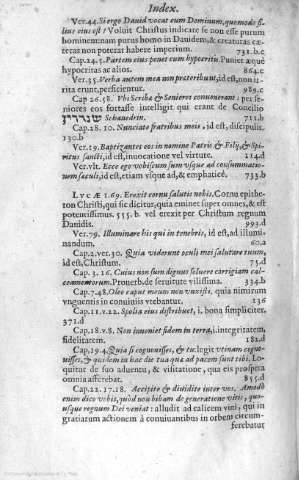 Index.
Ver.44. Si ergo Dauid vocat eum Dominum, quomodo fi-
lius eius est? Voluit Christus indicare se non esse purum
hominem: nam purus homo in Dauidem, & creaturas cæ-
teras non poterat habere imperium. 731.b.c
Cap.24.5. Partem eius ponet cum hypocritis. Puniet æquè
hypocritas ac alios. 864.c
Ver.35. Verba autem mea non præteribunt, id est, non ir-
rita erunt, perficientur. 989.c
Cap 26.58. Vbi Scribæ & Seniores conuenerant: per se-
niores eos fortasse intelligit qui erant de Concilio
Sehanedrin. 711.b
Cap.28.10. Nunciate fratribus meis, id est, discipulis.
130.b
Ver.19. Baptizantes eos in nomine Patris & Filij, & Spi-
ritus sancti, id est, inuocatione vel virtute. 114.d
Ver.vlt. Ecce ego vobiscum sum vsque ad consummatio-
nem sæculi, id est, etiam vsque ad, & emphaticè. 733.b
LVCÆ 1.69. Erexit cornu salutis nobis. Cornu epithe-
ton Christi, qui sic dicitur, quia eminet super omnes, & est
potentissimus. 515.b. vel erexit per Christum regnum
Dauidis. 993.d
Ver.79. Illuminare his qui in tenebris, id est, ad illumi-
nandum. 60.a
Cap.2.ver.30. Quia viderunt oculi mei salutare tuum,
id est, Christum. 75.d
Cap.3.16. Cuius non sum dignus soluere corrigiam cal-
ceamentorum. Prouerb. de seruitute vilissima. 334.b
Cap.7.48. Oleo caput meum non vnxisti, quia nimirum
vnguentis in conuiuiis vtebantur. 136
Cap.11.v.22. Spolia eius distribuet, i. bona simpliciter.
371.d
Cap.18.v.8. Non inueniet fidem in terra, i. integritatem,
fidelitatem. 182.d
Cap.19.4. Quia si cognouisses, & tu. legit vtinam cogno-
uisses, & quidem in hac die tua quæ ad pacem sunt tibi. Lo-
quitur de suo aduentu, & visitatione, quæ eis prospera
omnia afferebat. 855.d
Cap.22.17.18. Accipite & diuidite inter vos. Amodo
enim dico vobis, quòd non bibam de generatione vitis, quo-
usque regnum Dei veniat: alludit ad calicem vini, qui in
gratiarum actionem à conuiuantibus in orbem circum-
ferebatur